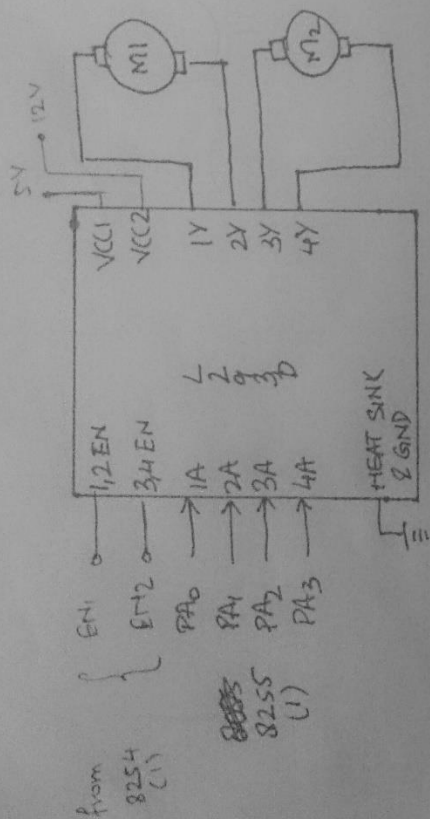 5V
12V
VCC1
VCC2
1Y
2Y
3Y
4Y
M1
M2
L
2
9
3
D
1,2 EN
3,4 EN
1A
2A
3A
4A
HEAT SINK
& GND
EN1
EN2
PA0
PA1
PA2
PA3
from
8254
(1)
8255
(1)